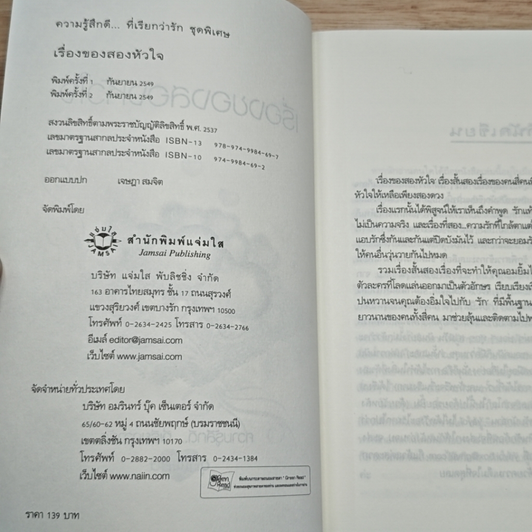 ความรู้สึกดี... ที่เรียกว่ารัก ชุดพิเศษ
เรื่องของสองหัวใจ
พิมพ์ครั้งที่ 1 กันยายน 2549
พิมพ์ครั้งที่ 2 กันยายน 2549
สงวนลิขสิทธิ์ตามพระราชบัญญัติลิขสิทธิ์ พ.ศ. 2537
เลขมาตรฐานสากลประจำหนังสือ ISBN-13 978-974-9984-69-7
เลขมาตรฐานสากลประจำหนังสือ ISBN-10 974-9984-69-2
ออกแบบปก เจษฎา สมจิต
จัดพิมพ์โดย
แจ่มใส
JAMSAI
สำนักพิมพ์แจ่มใส
Jamsai Publishing
บริษัท แจ่มใส พับลิชชิ่ง จำกัด
163 อาคารไทยสมุทร ชั้น 17 ถนนสุรวงศ์
แขวงสุริยวงศ์ เขตบางรัก กรุงเทพฯ 10500
โทรศัพท์ 0-2634-2425 โทรสาร 0-2634-2766
อีเมล์ editor@jamsai.com
เว็บไซต์ www.jamsai.com
จัดจำหน่ายทั่วประเทศโดย
บริษัท อมรินทร์ บุ๊ค เซ็นเตอร์ จำกัด
65/60-62 หมู่ 4 ถนนชัยพฤกษ์ (บรมราชชนนี)
เขตตลิ่งชัน กรุงเทพฯ 10170
โทรศัพท์ 0-2882-2000 โทรสาร 0-2434-1384
เว็บไซต์ www.naiin.com
Green Read
ราคา 139 บาท
เรื่องของสองหัวใจ เรื่องสั้นสองเรื่องของคนสี่คนที่
หัวใจให้เหลือเพียงสองดวง
เรื่องแรกนั้นได้พิสูจน์ให้เราเห็นถึงคำพูด รักแท้
ไม่เป็นความจริง และเรื่องที่สอง...ความรักที่ใกล้ตาแต่
แอบรักซึ่งกันและกันแต่ปิดบังมันไว้ และกว่าจะยอมรับ
ให้คนอื่นวุ่นวายกันไปหมด
รวมเรื่องสั้นสองเรื่องที่จะทำให้คุณอมยิ้มไป
ตัวละครที่โลดแล่นออกมาเป็นตัวอักษร เรียบเรียง
ปนหวานจนคุณต้องอิ่มใจไปกับ รัก ที่มีพื้นฐาน
ยาวนานของคนทั้งสี่คน มาช่วยลุ้นและติดตามไป